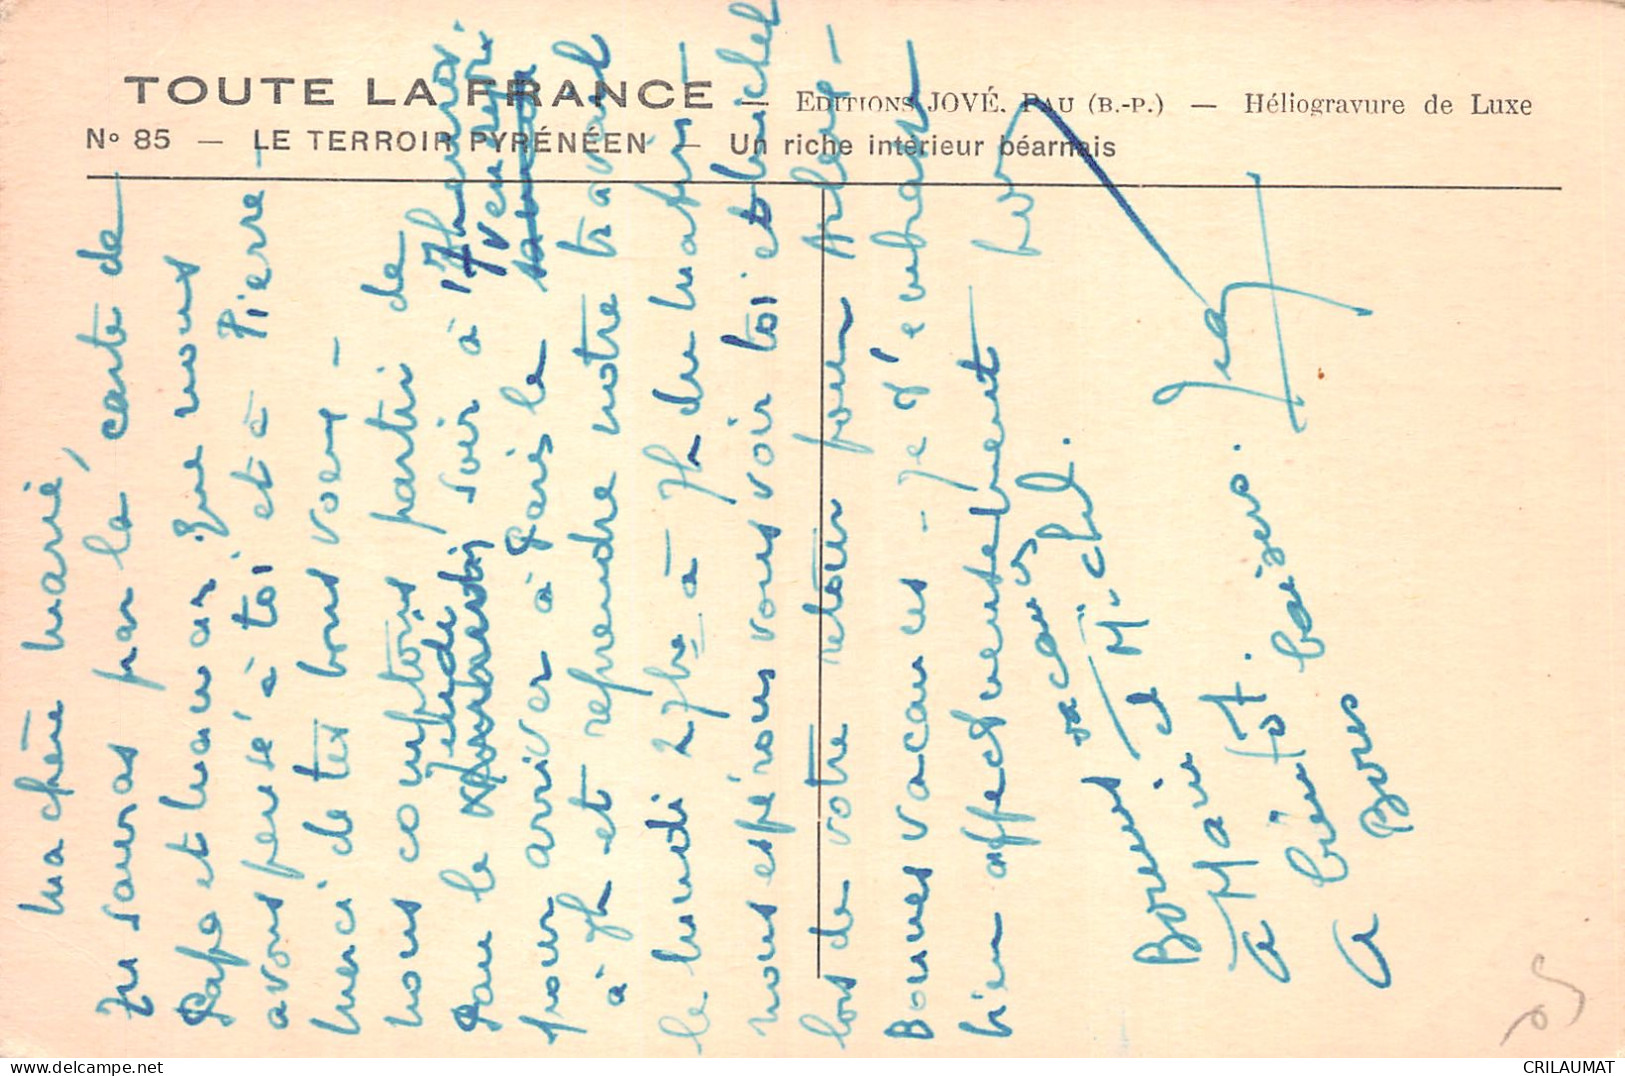 TOUTE LA FRANCE — EDITIONS JOVÉ. PAU (B.-P.) — Héliogravure de Luxe
N° 85 — LE TERROIR PYRÉNÉEN — Un riche intérieur béarnais
Ma chère Marie,
Tu sauras par la carte de
Papa et Maman que nous
avons pensé à toi et à Pierre -
Merci de tes bons voeux -
nous comptons partir de
Pau le Jeudi soir à 17 heures
pour arriver à Paris le Vendredi
à 7h et reprendre notre travail
le lundi 27 à 7h du matin -
nous espérons vous voir toi et Michel
lors de votre retour pour Arleux -
Bonnes vacances - je t'embrasse
bien affectueusement
Bonnes vacances
à Marie et Michel.
à bientôt.
Bons baisers.
CRILAUMAT